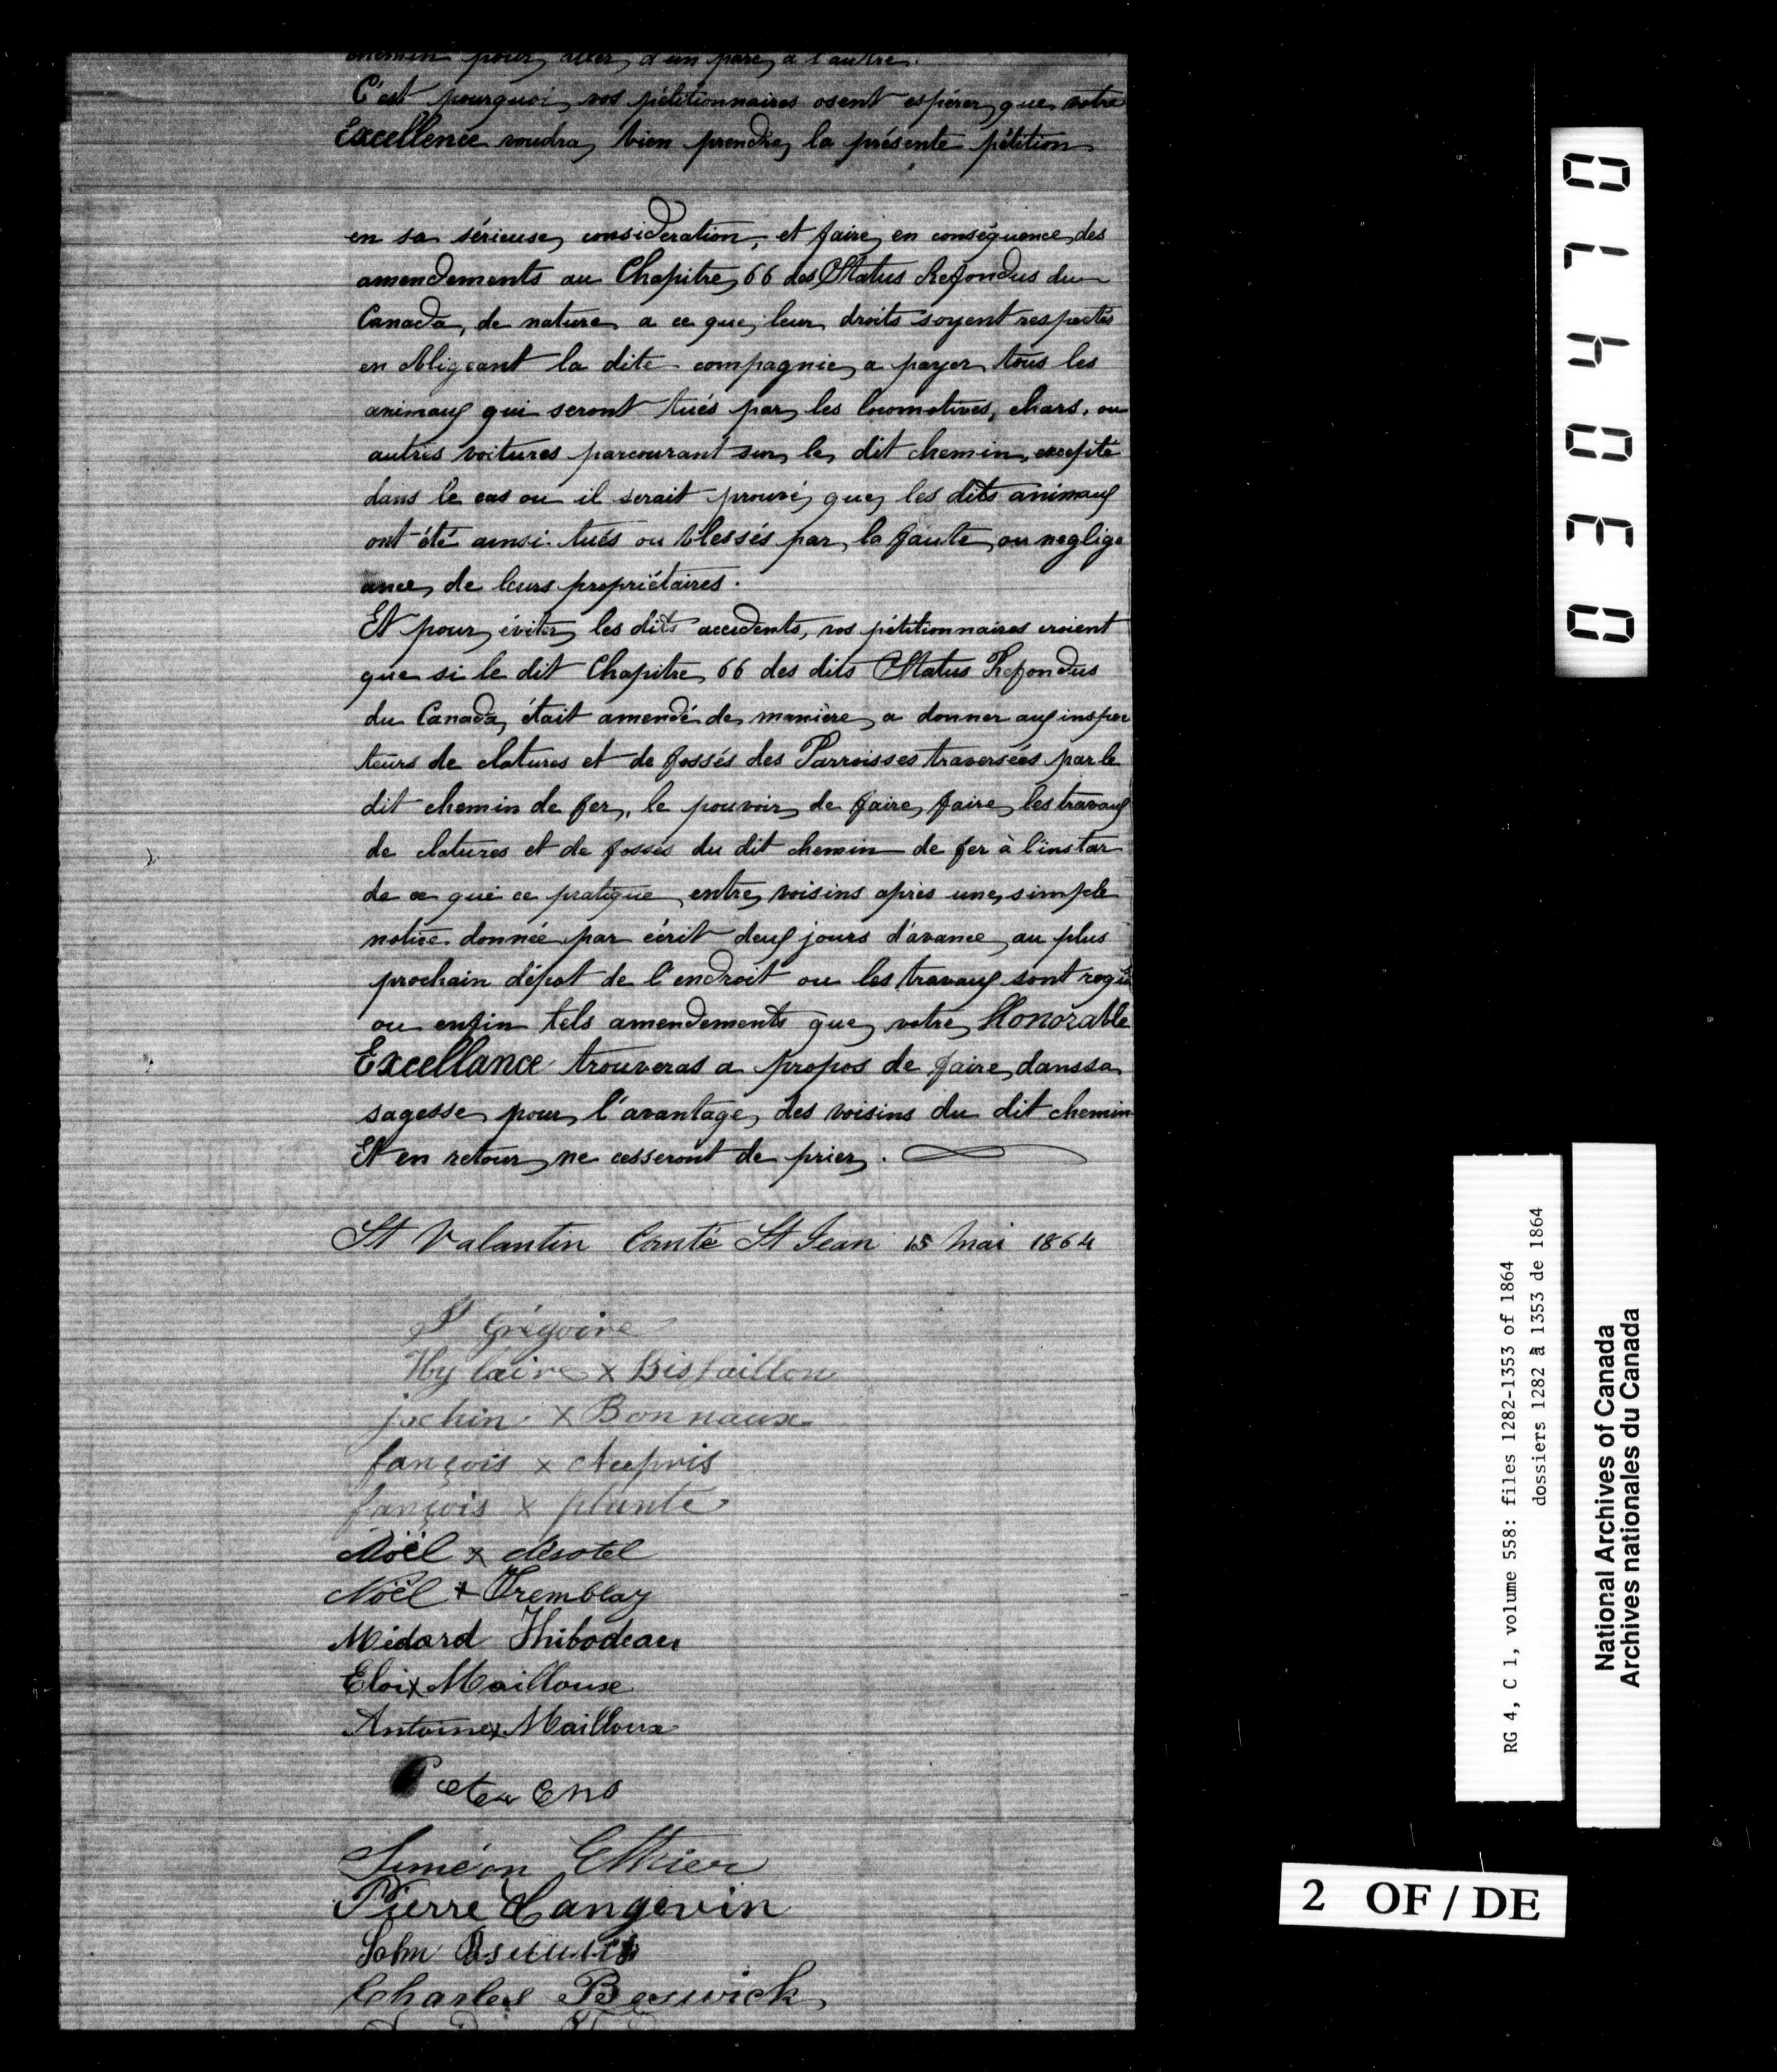 chemin pour aller d'un parc a l'autre.
C'est pourquoi vos pétitionnaires osent espérer que votre
Excellence voudra bien prendre la présente pétition
en sa sérieuse considération, et faire en conséquence des
amendements au Chapitre 66 des Status Refondus du
Canada, de nature a ce que leur droits soyent respectés
en obligeant la dite compagnie a payer tous les
animaux qui seront tués par les locomotives, chars, ou
autres voitures parcourant sur le dit chemin, excepité
dans le cas ou il serait prouvé que les dits animaux
ont été ainsi tués ou blessés par la faute ou neglige
ance de leurs propriétaires.
Et pour éviter les dits accidents, vos pétitionnaires croient
que si le dit Chapitre 66 des dits Status Refondus
du Canada, était amendé de manière a donner aux inspec
teurs de clatures et de fossés des Parroisses traversées par le
dit chemin de fer, le pouvoir de faire faire les travaux
de clatures et de fossés du dit chemin de fer à l'instar
de ce qui ce pratique entre voisins après une simple
notice donnée par écrit deux jours d'avance au plus
prochain dépot de l'endroit ou les travaux sont requis
ou enfin tels amendements que votre Honorable
Excellance trouveras a propos de faire dans sa
sagesse pour l'avantage des voisins du dit chemin
Et en retour ne cesseront de prier.
St Valantin Comté St Jean 15 Mai 1864
Grégoire
Hylaire x Bissaillon
jochin x Bonnaux
fançois x Dupris
fançois x plante
Noël x désotel
Noël x Tremblay
Médard Thibodeau
Eloi x Mailloux
Antoine x Mailloux
Peter Ens
Siméon Ethier
Pierre Langevin
John
Charles Beswick
0 3 0 4 7 0
RG 4, C 1, volume 558: files 1282-1353 of 1864
dossiers 1282 à 1353 de 1864
National Archives of Canada
Archives nationales du Canada
2 OF / DE